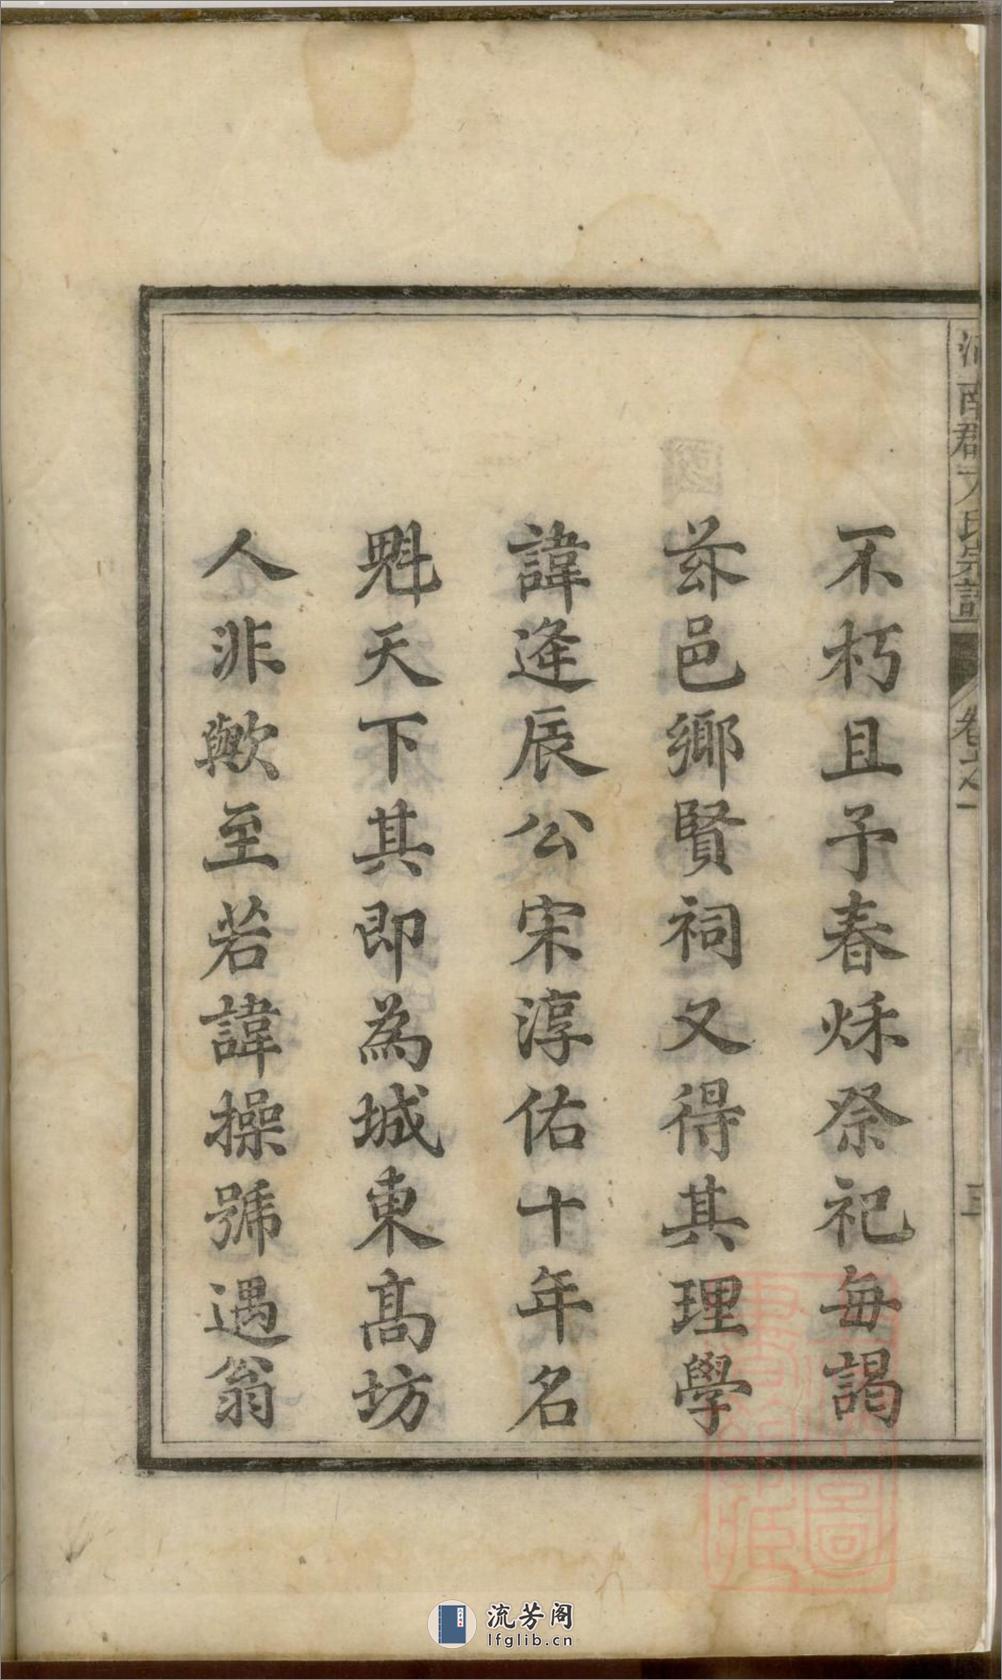 不朽且予春秌祭祀每謁
茲邑鄉賢祠又得其理學
諱逄辰公宋淳佑十年名
魁天下其即為城東髙坊
人非歟至若諱操號遇翁
河南郡方氏宗譜
卷之一
流芳阁
lfglib.cn